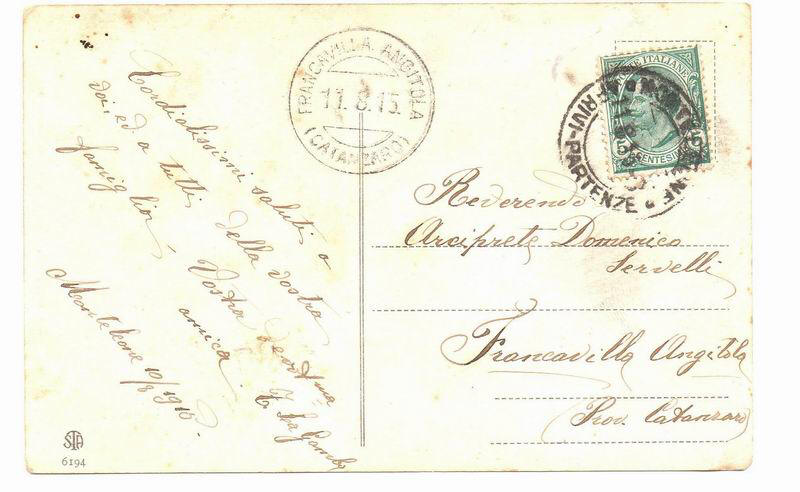 Cordialissimi saluti a
voi, ed a tutti della vostra
famiglia,
Vostra
amica
Monteleone 10/8 1915.
STA
6194
FRANCAVILLA ANGITOLA
11.8.15
(CATANZARO)
POSTE ITALIANE
5 CENTESIMI 5
ARRIVI-PARTENZE
Reverendo
Arciprete Domenico
Servelli
Francavilla Angitola
Prov. Catanzaro